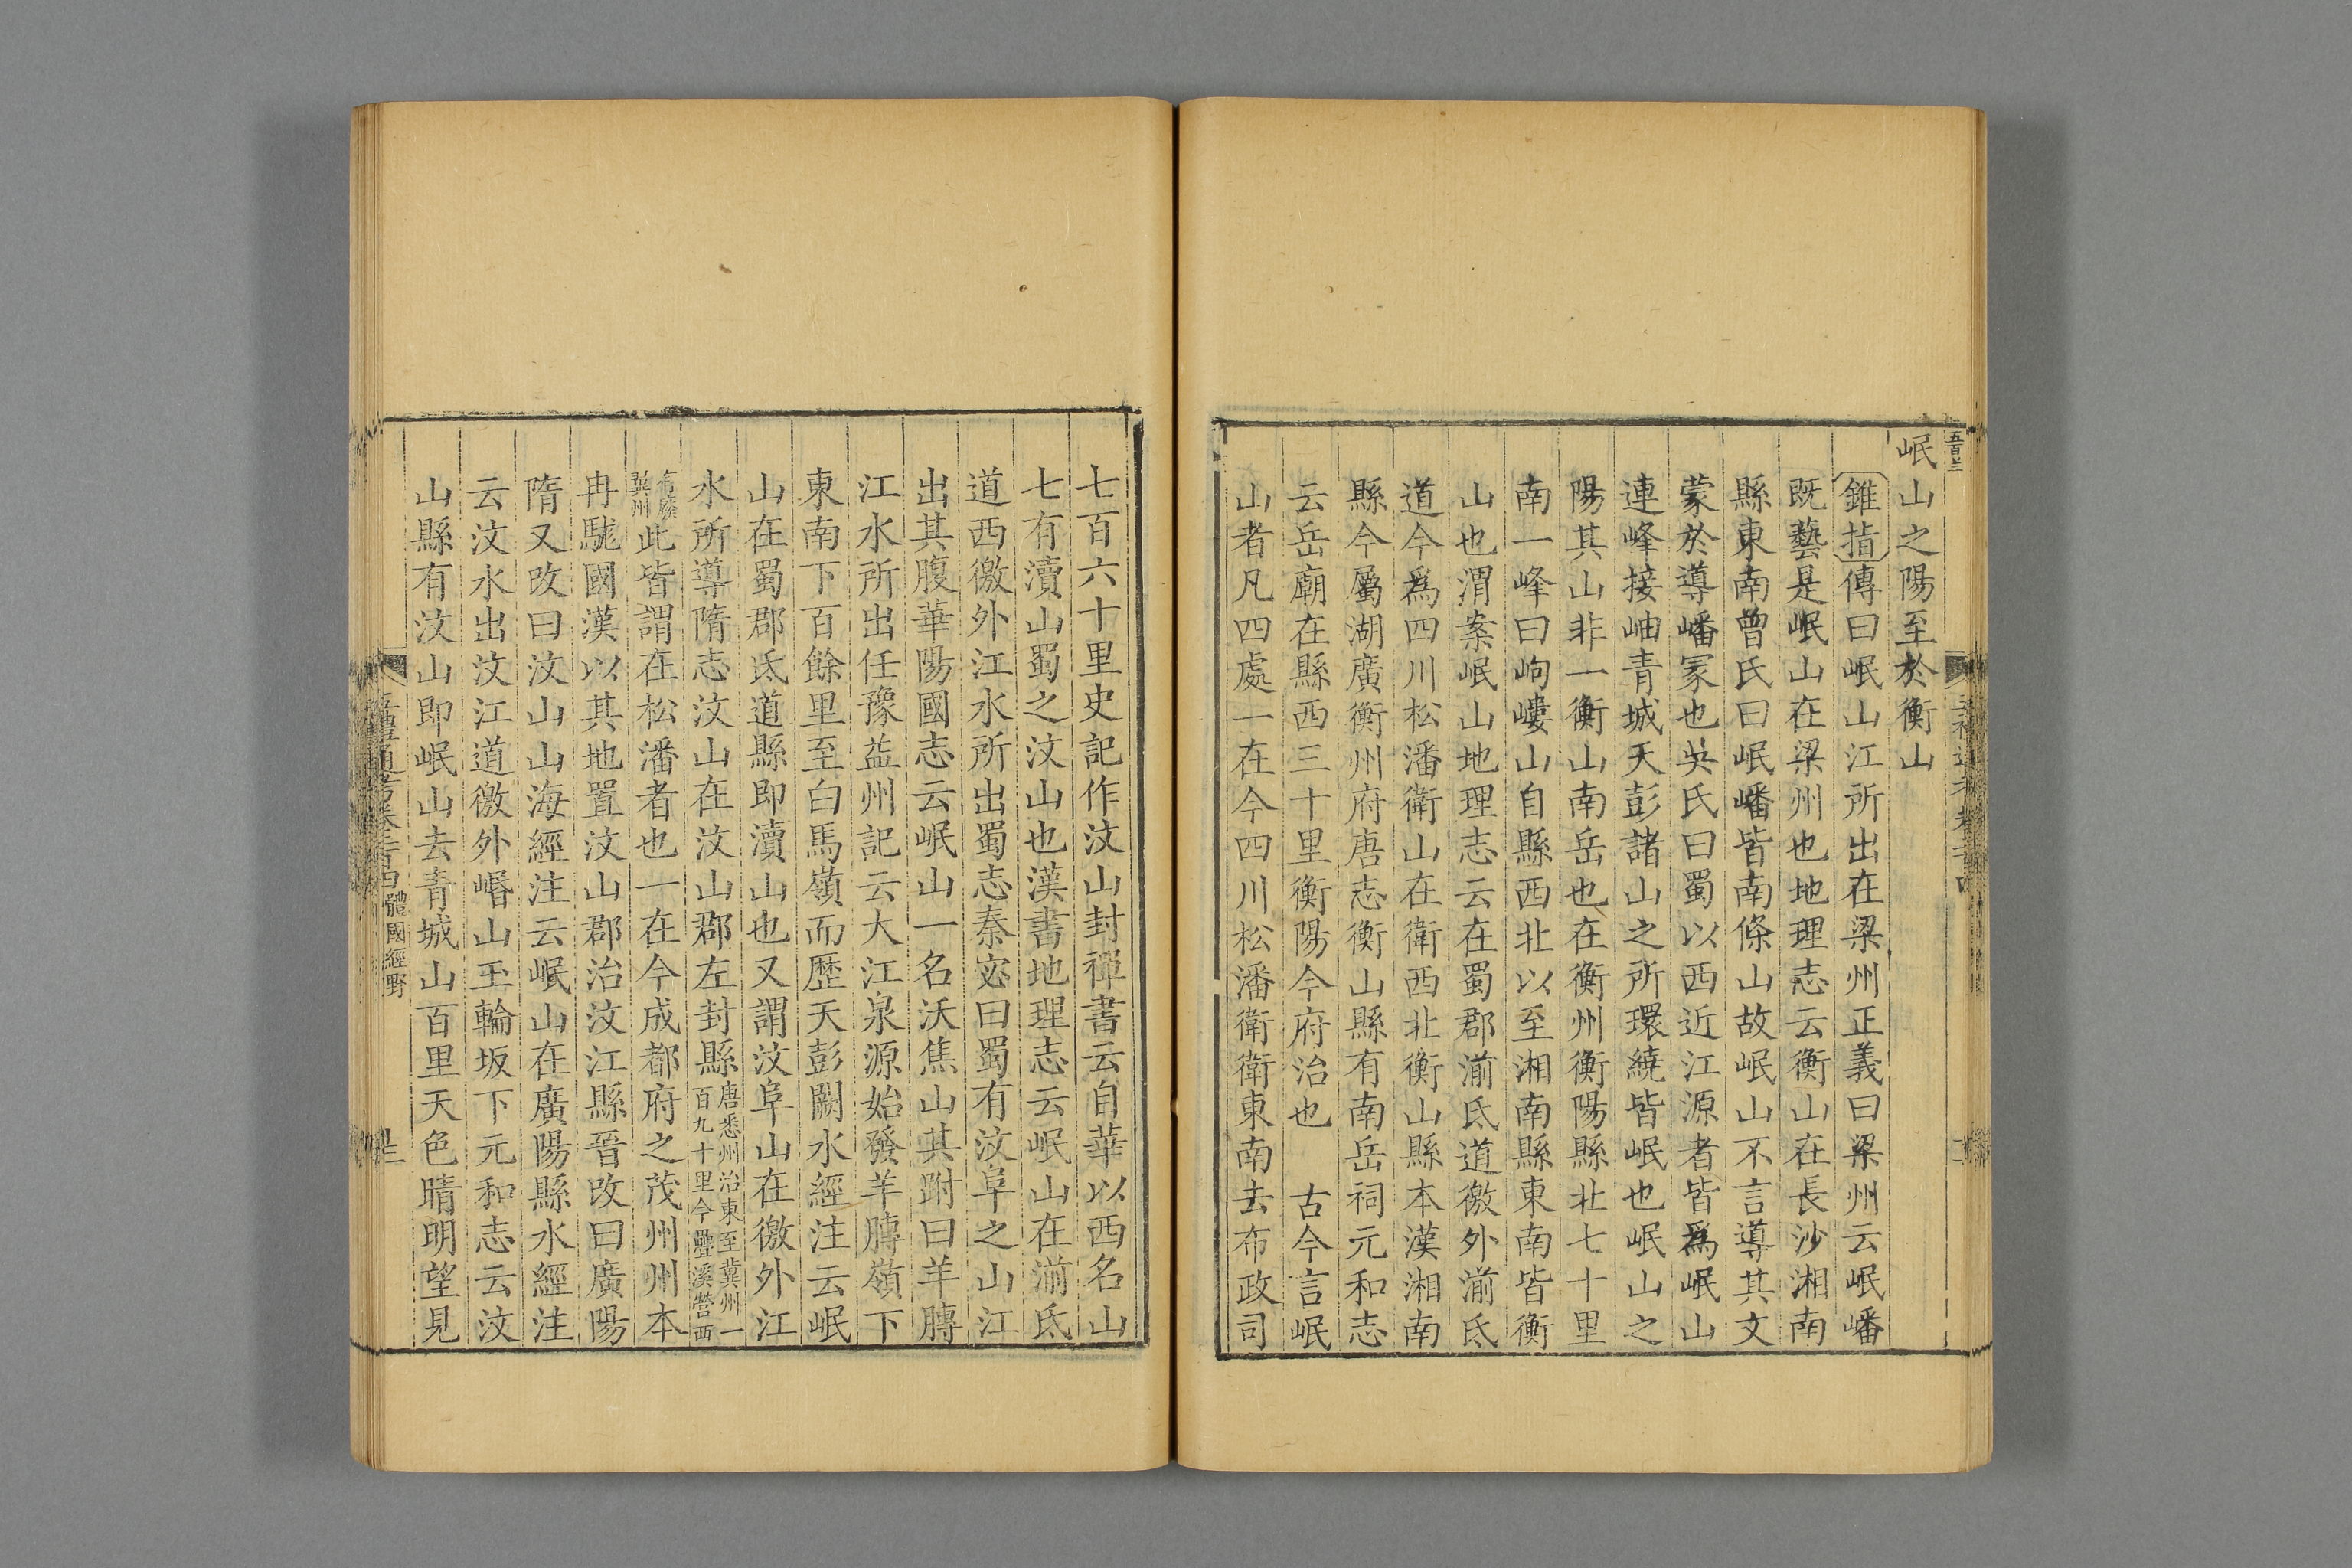 五百三
岷山之陽至於衡山
錐指傳曰岷山江所出在梁州正義曰梁州云岷嶓
既藝是岷山在梁州也地理志云衡山在長沙湘南
縣東南曾氏曰岷嶓皆南條山故岷山不言導其文
蒙於導嶓冢也吳氏曰蜀以西近江源者皆爲岷山
連峰接岫青城天彭諸山之所環繞皆岷也岷山之
陽其山非一衡山南岳也在衡州衡陽縣北七十里
南一峰曰岣嶁山自縣西北以至湘南縣東南皆衡
山也渭案岷山地理志云在蜀郡湔氐道徼外湔氐
道今爲四川松潘衛山在衛西北衡山縣本漢湘南
縣今屬湖廣衡州府唐志衡山縣有南岳祠元和志
云岳廟在縣西三十里衡陽今府治也　古今言岷
山者凡四處一在今四川松潘衛衛東南去布政司
七百六十里史記作汶山封禪書云自華以西名山
七有瀆山蜀之汶山也漢書地理志云岷山在湔氐
道西徼外江水所出蜀志秦宓曰蜀有汶阜之山江
出其腹華陽國志云岷山一名沃焦山其跗曰羊膊
江水所出任豫益州記云大江泉源始發羊膊嶺下
東南下百餘里至白馬嶺而歷天彭闕水經注云岷
山在蜀郡氐道縣即瀆山也又謂汶阜山在徼外江
水所導隋志汶山在汶山郡左封縣唐悉州治東至冀州一百九十里今疊溪營西
有廢冀州此皆謂在松潘者也一在今成都府之茂州州本
冉駹國漢以其地置汶山郡治汶江縣晉改曰廣陽
隋又改曰汶山山海經注云岷山在廣陽縣水經注
云汶水出汶江道徼外㟭山玉輪坂下元和志云汶
山縣有汶山即岷山去青城山百里天色晴明望見
體國經野